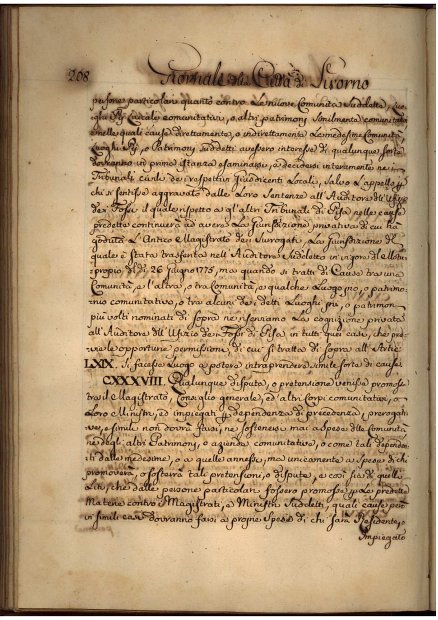 208
persone particolari quanto contro Le nuove Comunità suddette,
comunitativi, o altri patrimonj similmente comunitativi
nelle quali cause direttamente, o indirettamente Le medesime Comunità
Luoghi Pij, o Patrimonj suddetti avessero interesse di qualunque sorte
dovranno in prima istanza esaminarsi, e decidersi interamente nei
Tribunali Civili dei rispettivi Giusdicenti Locali, salvo L'appello p
chi si sentisse aggravato dalle Loro Sentenze all'Auditore dell'Ufizio
dei Fossi il quale rispetto a gl'altri Tribunali di Pisa nelle cause
predette continuerà ad avere La Giurisdizione privativa di cui ha
goduto L'Antico Magistrato dei Surrogati, La Giurisdizione di
quale è stata trasferita nell'Auditore suddetto in vigore del Motu
proprio di dì 26 Giugno 1775, ma quando si tratti di Cause tra una
Comunità, e l'altra, o tra Comunità, e qualche Luogo pio, o patrimo
nio comunitativo, o tra alcuni dei detti Luoghi pii, o patrimonj
più volte nominati di sopra ne riserviamo La cognizione privativa
all'Auditore dell'Ufizio dei Fossi di Pisa in tutti quei casi, che pre
vie le opportune permissioni di cui si tratta di sopra all'Artic
LXIX. si facesse Luogo a potere intraprendere simile sorte di cause
CXXXVIII. Qualunque disputa, o pretensione venisse promossa
tra il Magistrato, Consiglio generale, ed altri Corpi comunitativi, o
Loro Ministri, ed impiegati in dependenza di precedenza, prerogati
ve, e simili non dovrà farsi, ne sostenersi mai a spese delle comunità
ne degli altri Patrimonj, o aziende comunitative, o come tali dependen
ti dalle medesime, o a quelle annesse, ma unicamente a spese di chi
promoverà, o sosterrà tali pretensioni, o dispute, e così sia di quelle
Liti, che dalle persone particolari fossero promosse per le predette
Materie contro i Magistrati, e Ministri suddetti, quali cause pure
in simili casi dovranno farsi a proprie spese di chi sarà Residente, o
Impiegato